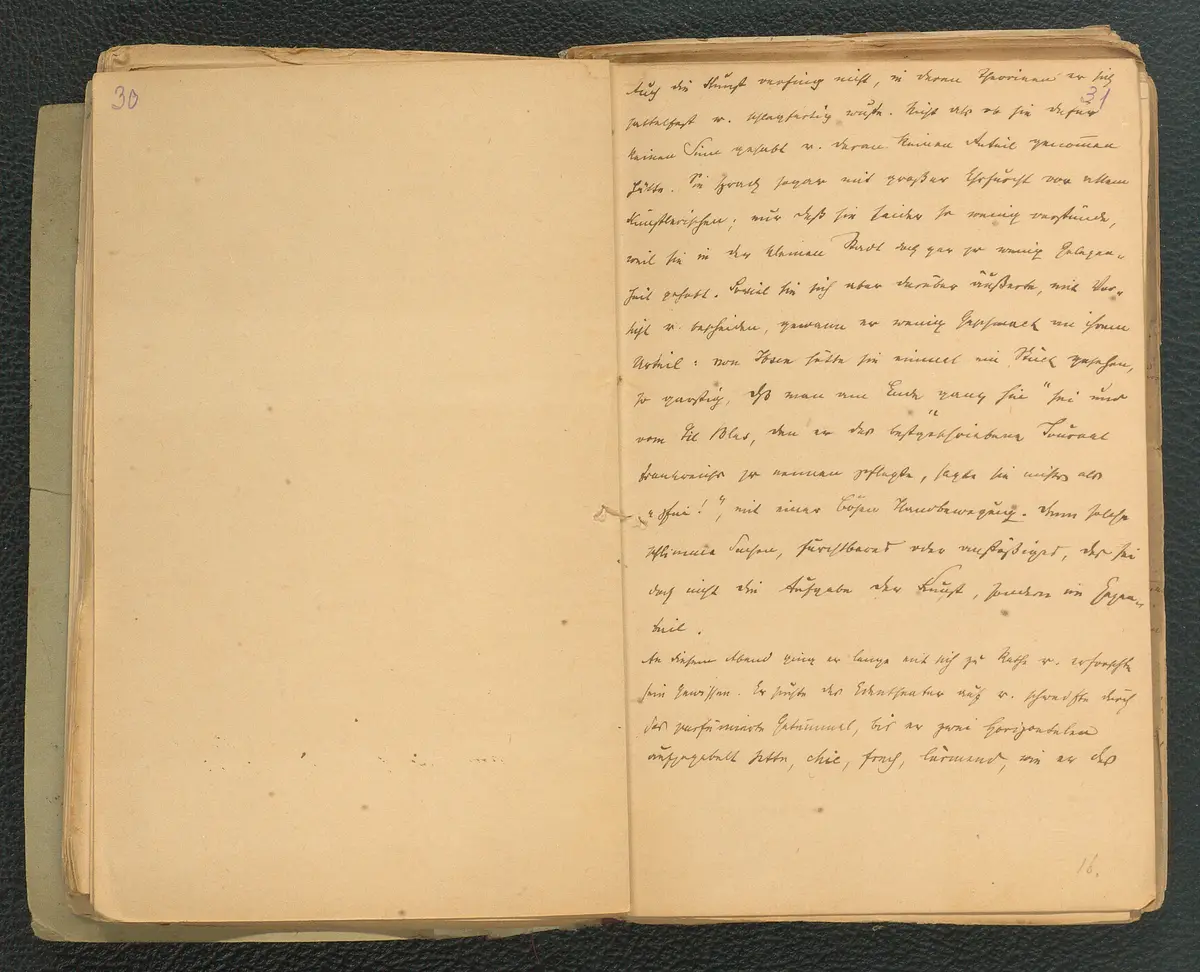 30
31
Auch die Kunst verfing nicht, in deren Theorieen er sich
sattelfest u. schlagfertig wußte. Nicht als ob sie dafür
keinen Sinn gehabt u. daran keinen Anteil genommen
hätte. Sie sprach sogar mit großer Ehrfurcht vor allem
Künstlerischen; nur daß sie leider so wenig verstünde,
weil sie in der kleinen Stadt doch gar so wenig Gelegen-
heit gehabt. Soviel sie sich aber darüber äußerte, mit Vor-
sicht u. bescheiden, gewann er wenig Geschmack an ihrem
Urteil: von Ibsen hätte sie einmal ein Stück gesehen,
so garstig, daß man am Ende ganz hin" sei und
vom Gil Blas, den er das bestgeschriebene Journal
Frankreichs zu nennen pflegte, sagte sie nichts als
„pfui!“, mit einer bösen Handbewegung. Denn solche
schlimme Sachen, furchtbares oder anstößiges, das sei
doch nicht die Aufgabe der Kunst, sondern im Gegen-
teil.
An diesem Abend ging er lange mit sich zu Rathe u. erforschte
sein Gewissen. Er suchte das Edentheater auf u. schweifte durch
das parfümierte Getümmel, bis er zwei Horizontalen
aufgegabelt hatte, chic, frech, lärmend, wie er das
16.